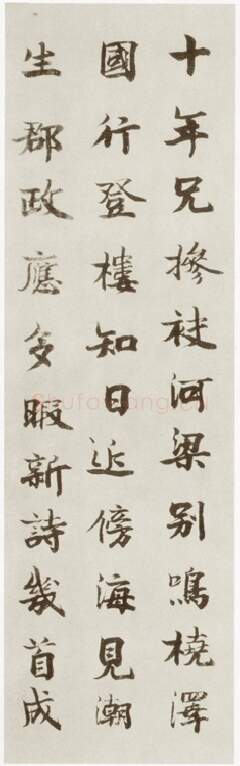 十年兄摻袂河梁别鳴橈澤
國行登樓知日近傍海見潮
生郡政應多暇新詩幾首成